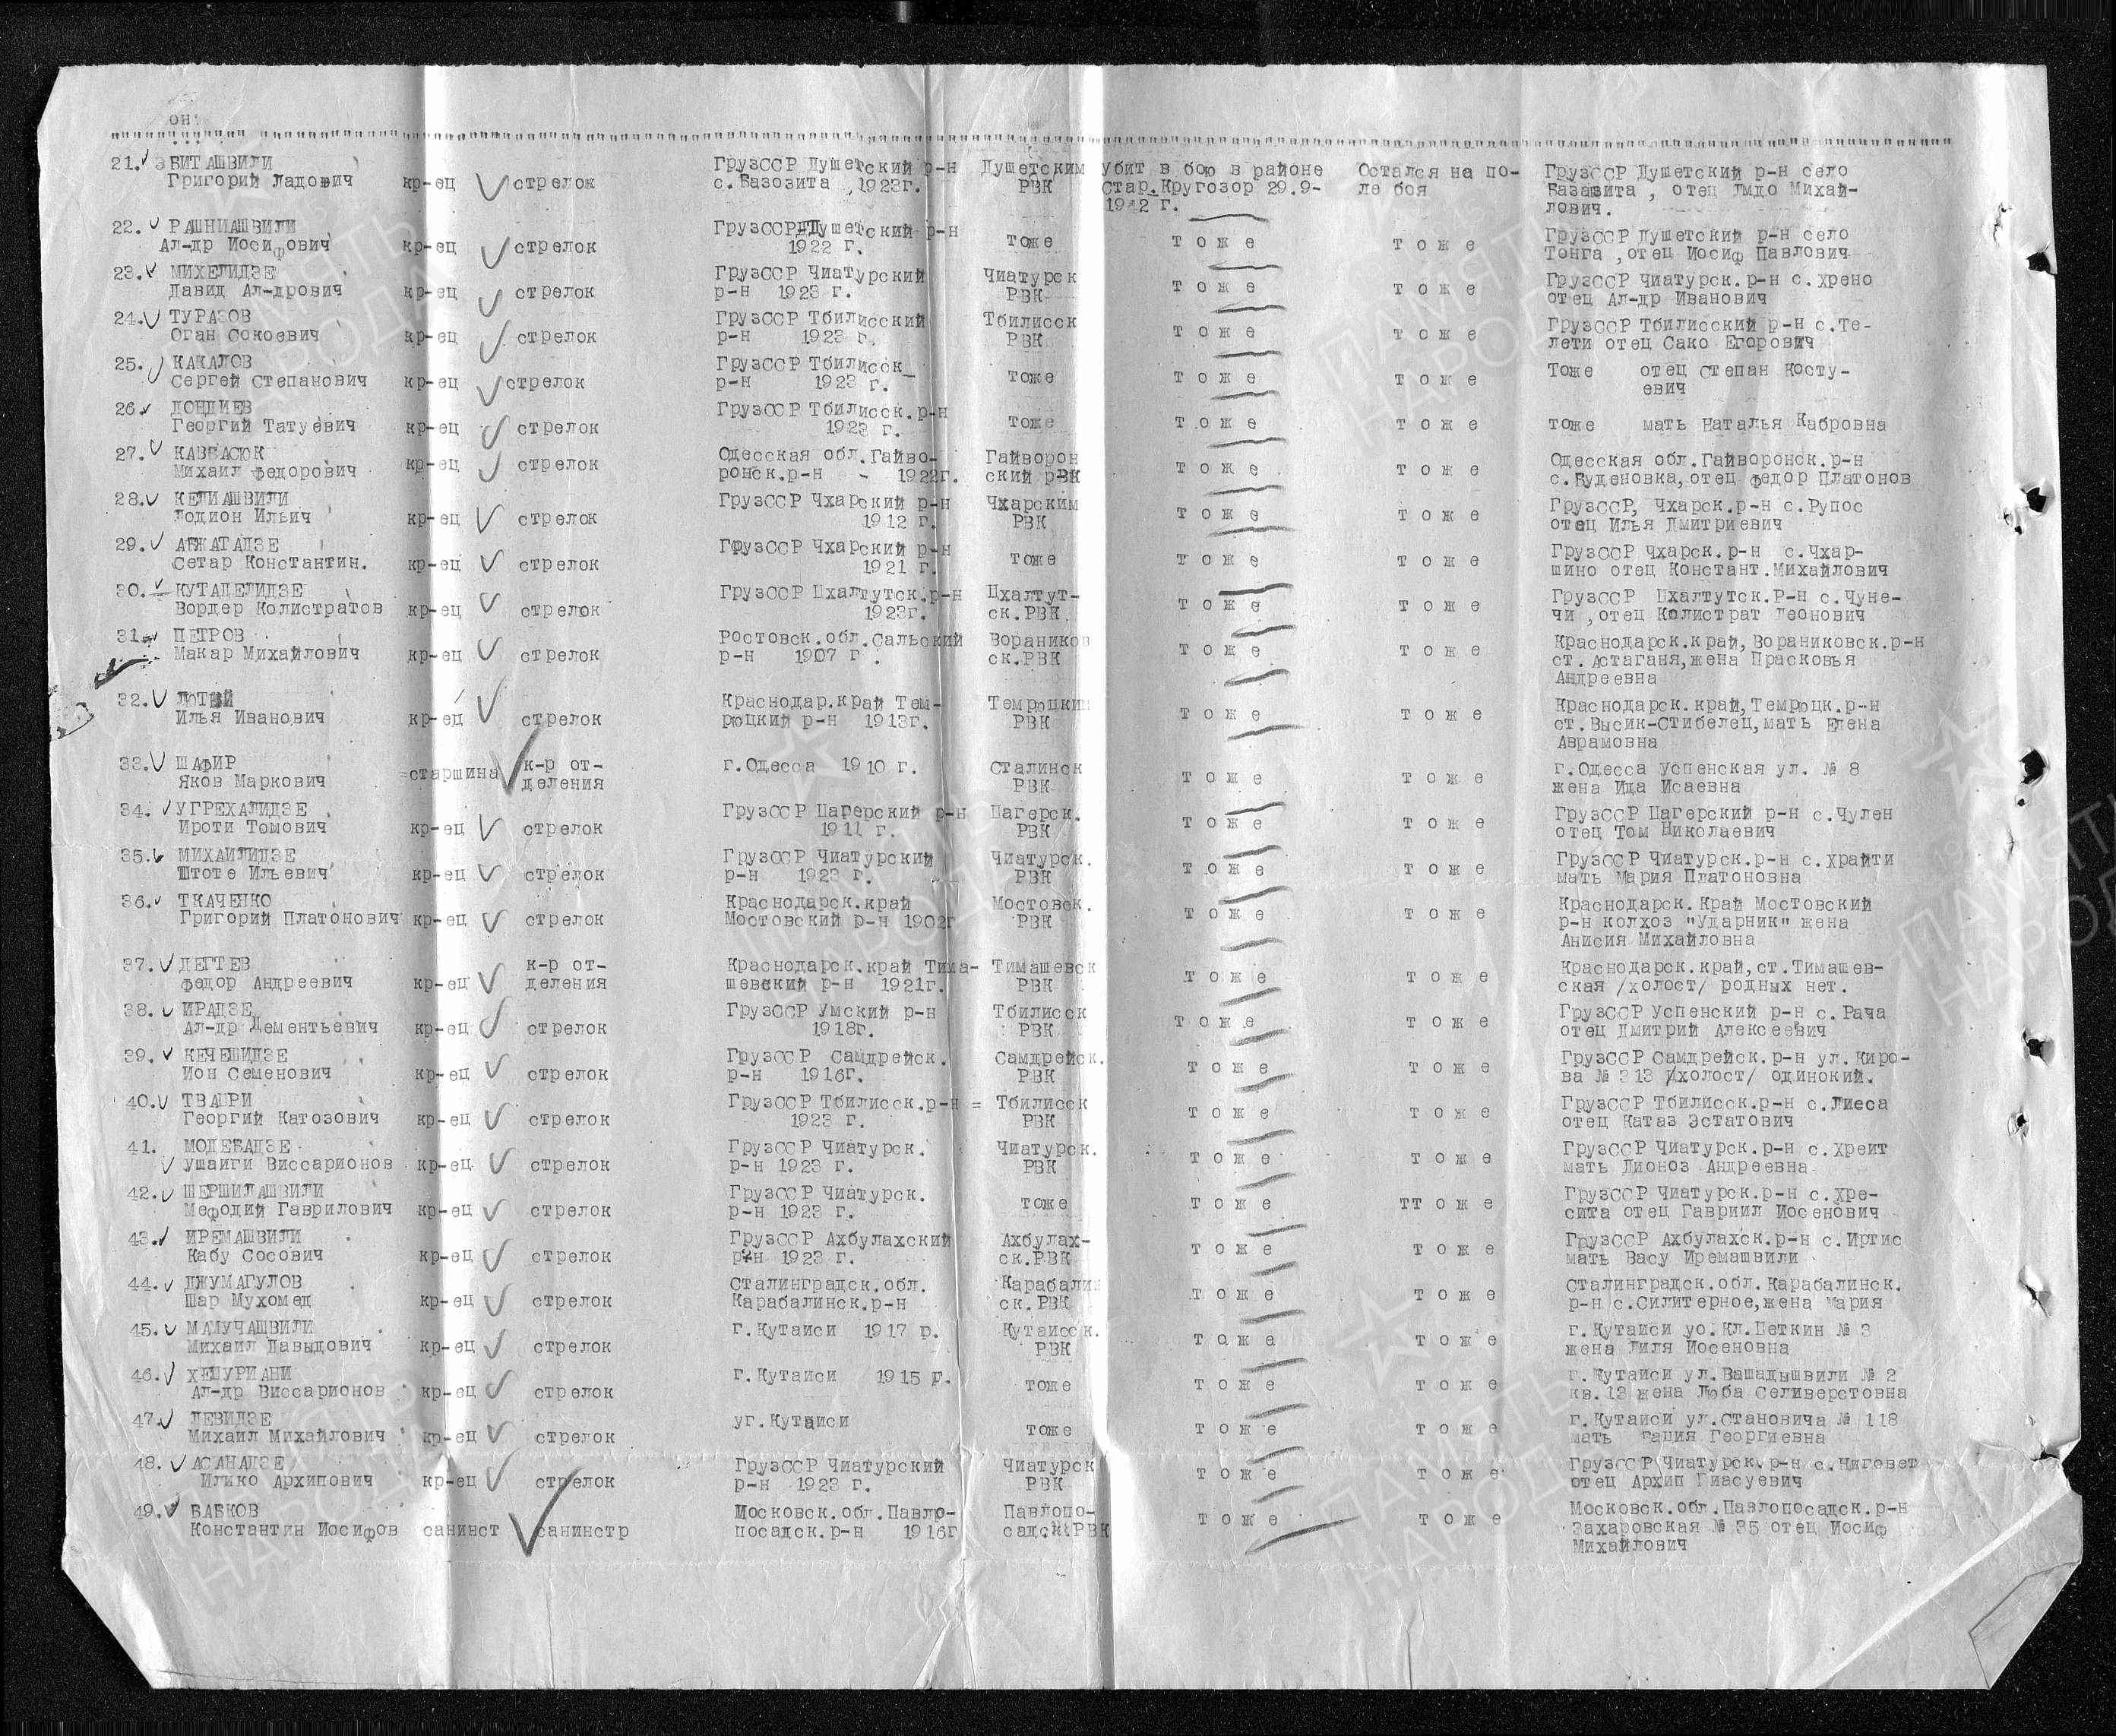 21. ЭБИТАШВИЛИ ГрузССР Душетский р-н Душетским убит в бою в районе Остался на по- ГрузССР Душетский р-н село
Григорий Ладович кр-ец стрелок с.Базозита , 1923г. РВК Стар.Кругозор 29.9- ле боя Базавита , отец Лмдо Михай-
1942 г. лович.
22. РАШНИАШВИЛИ ГрузССР Душетский р-н ГрузССР Душетский р-н село
Ал-др Иосифович кр-ец стрелок 1922 г. тоже т о ж е т о ж е Тонга ,отец Иосиф Павлович
23. МИХЕЛИДЗЕ ГрузССР Чиатурский Чиатурск ГрузССР Чиатурск.р-н с.хрено
Давид Ал-дрович кр-ец стрелок р-н 1923 г. РВК т о ж е т о ж е отец Ал-др Иванович
24. ТУРАЗОВ ГрузССР Тбилисский Тбилисск ГрузССР Тбилисский р-н с.Те-
Оган Сокоевич кр-ец стрелок р-н 1923 г. РВК т о ж е т о ж е лети отец Сако Егорович
25. КАКАЛОВ ГрузССР Тбилисск_ Тоже отец Степан Косту-
Сергей Степанович кр-ец стрелок р-н 1923 г. тоже т о ж е т о ж е евич
26. ДОНДИЕВ ГрузССР Тбилисск.р-н
Георгий Татуевич кр-ец стрелок 1923 г. тоже т о ж е т о ж е тоже мать Наталья Кабровна
27. КАВВАСЮК Одесская обл.Гайво- Гайворон Одесская обл.Гайворонск.р-н
Михаил федорович кр-ец стрелок ронск.р-н - 1922г. ский рВК т о ж е т о ж е с.Буденовка,отец федор Платонов
28. КЕЛИАШВИЛИ ГрузССР Чхарский р-н Чхарским ГрузССР, Чхарск.р-н с.Рупос
Лодион Ильич кр-ец стрелок 1912 г. РВК т о ж е т о ж е отец Илья Дмитриевич
29. АБЖАТАДЗЕ ГрузССР Чхарский р-н ГрузССР Чхарск.р-н с.Чхар-
Сетар Константин. кр-ец стрелок 1921 г. тоже т о ж е т о ж е шино отец Констант.Михайлович
30. КУТАЦЕЛИДЗЕ ГрузССР Цхалтутск.р-н Цхалтут- ГрузССР Цхалтутск.Р-н с.Чуне-
Вордер Колистратов кр-ец стрелок 1923г. ск.РВК т о ж е т о ж е чи ,отец Колистрат Леонович
31. ПЕТРОВ Ростовск.обл.Сальский Вораников Краснодарск.край,Вораниковск.р-н
Макар Михайлович кр-ец стрелок р-н 1907 г . ск.РВК т о ж е т о ж е ст.Астаганя,жена Прасковья
Андреевна
32. ЛЮТЫЙ Краснодар.край Тем- Темрюцким Краснодарск.край,Темрюцк.р-н
Илья Иванович кр-ец стрелок рюцкий р-н 1913г. РВК т о ж е т о ж е ст.Высик-Стибелец,мать Елена
Аврамовна
33. ШАФИР к-р от- г.Одесса 1910 г. Сталинск г.Одесса Успенская ул. № 8
Яков Маркович =старшина деления РВК т о ж е т о ж е жена Ида Исаевна
34. УГРЕХАЛИДЗЕ ГрузССР Цагерский р-н Цагерск. ГрузССР Цагерский р-н с.Чулен
Ироти Томович кр-ец стрелок 1911 г. РВК т о ж е т о ж е отец Том Николаевич
35. МИХАИЛИДЗЕ ГрузССР Чиатурский Чиатурск. ГрузССР Чиатурск.р-н с.храйти
Штоте Ильевич кр-ец стрелок р-н 1923 г. РВК т о ж е т о ж е мать Мария Платоновна
36. ТКАЧЕНКО Краснодарск.край Мостовск. Краснодарск.Край Мостовский
Григорий Платонович кр-ец стрелок Мостовский р-н 1902г РВК т о ж е т о ж е р-н колхоз "Ударник" жена
Анисия Михайловна
37. ДЕГТЕВ к-р от- Краснодарск.край Тима- Тимашевск Краснодарск.край,ст.Тимашев-
федор Андреевич кр-ец деления шевский р-н 1921г. РВК т о ж е т о ж е ская /холост/ родных нет.
38. ИРАДЗЕ ГрузССР Умский р-н Тбилисск ГрузССР Успенский р-н с.Рача
Ал-др Дементьевич кр-ец стрелок 1918г. РВК т о ж е т о ж е отец Дмитрий Алексеевич
39. КЕЧЕШИДЗЕ ГрузССР Самдрейск. Самдрейск. ГрузССР Самдрейск.р-н ул.Киро-
Ион Семенович кр-ец стрелок р-н 1916г. РВК т о ж е т о ж е ва № 313 /холост/ одинокий.
40. ТВАУРИ ГрузССР Тбилисск.р-н = Тбилисск ГрузССР Тбилисск.р-н с.Лиеса
Георгий Катозович кр-ец стрелок 1923 г. РВК т о ж е т о ж е отец Катаз Эстатович
41. МОДЕБАДЗЕ ГрузССР Чиатурск. Чиатурск. ГрузССР Чиатурск.р-н с.хреит
Ушаиги Виссарионов кр-ец стрелок р-н 1923 г. РВК т о ж е т о ж е мать Лионоз Андреевна
42. ШЕРШИЛАШВИЛИ ГрузССР Чиатурск. ГрузССР Чиатурск.р-н с.хре-
Мефодий Гаврилович кр-ец стрелок р-н 1923 г. тоже т о ж е тт о ж е сита отец Гавриил Иосенович
43. ИРЕМАШВИЛИ ГрузССР Ахбулахский Ахбулах- ГрузССР Ахбулахск.р-н с.Иртис
Кабу Сосович кр-ец стрелок р-н 1923 г. ск.РВК т о ж е т о ж е мать Васу Иремашвили
44. ДЖУМАГУЛОВ Сталинградск.обл. Карабалин Сталинградск.обл.Карабалинск.
Шар Мухомед кр-ец стрелок Карабалинск.р-н ск.РВК т о ж е т о ж е р-н с.Силитерное,жена Мария
45. МАМУЧАШВИЛИ г.Кутаиси 1917 г. Кутаисск. г.Кутаиси уо.Кл.Цеткин № 3
Михаил Давыдович кр-ец стрелок РВК т о ж е т о ж е жена Лиля Иосеновна
46. ХЕЦУРИАНИ г.Кутаиси 1915 г. г.Кутаиси ул.Вашадышвили № 2
Ал-др Виссарионов кр-ец стрелок тоже т о ж е т о ж е кв.13 жена Люба Селиверстовна
47. ЛЕВИДЗЕ уг.Кутаиси г.Кутаиси ул.Становича № 118
Михаил Михайлович кр-ец стрелок тоже т о ж е т о ж е мать Георгиевна
48. АСАНАДЗЕ ГрузССР Чиатурский Чиатурск ГрузССР Чиатурск.р-н с.Ниговет
Илико Архипович кр-ец стрелок р-н 1923 г. РВК т о ж е т о ж е отец Архип Гиасуевич
49. БАБКОВ Московск.обл.Павло- Павлопо- Московск.обл.Павлопосадск.р-н
Константян Иосифов санинст санинстр посадск.р-н 1916г садск.РВК т о ж е т о ж е Захаровская № 35 отец Иосиф
Михайлович